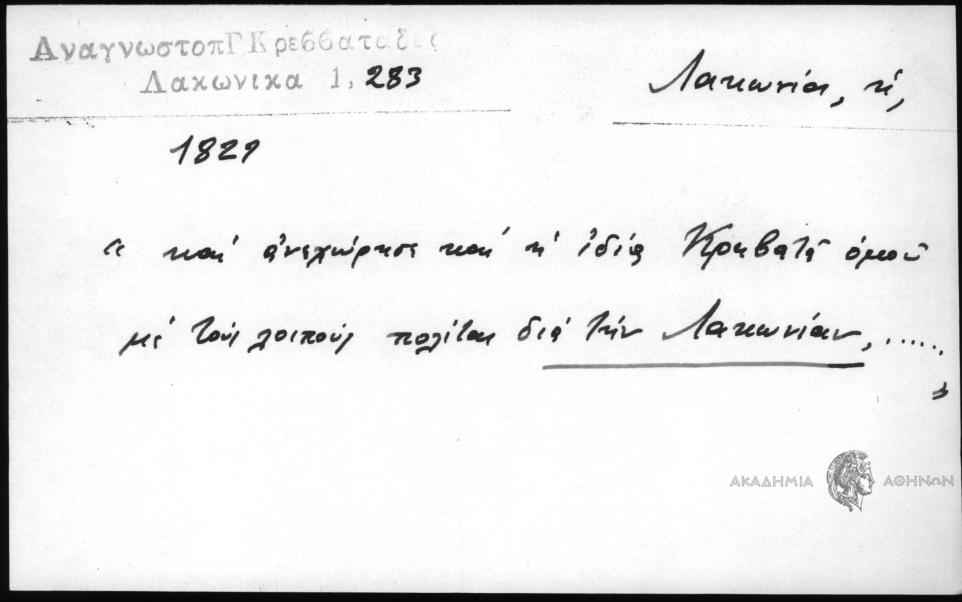 ΑναγνωστοπΓΚρεββαταδες
Λακωνικα 1, 283
Λακωνία, ἡ,
1829
« καὶ ἀνεχώρησε καὶ ἡ ἰδία Κρηβατᾶ ὁμοῦ
μὲ τοὺς λοιποὺς πολίτας διὰ τὴν Λακωνίαν, ......
»
ΑΚΑΔΗΜΙΑ ΑΘΗΝΩΝ